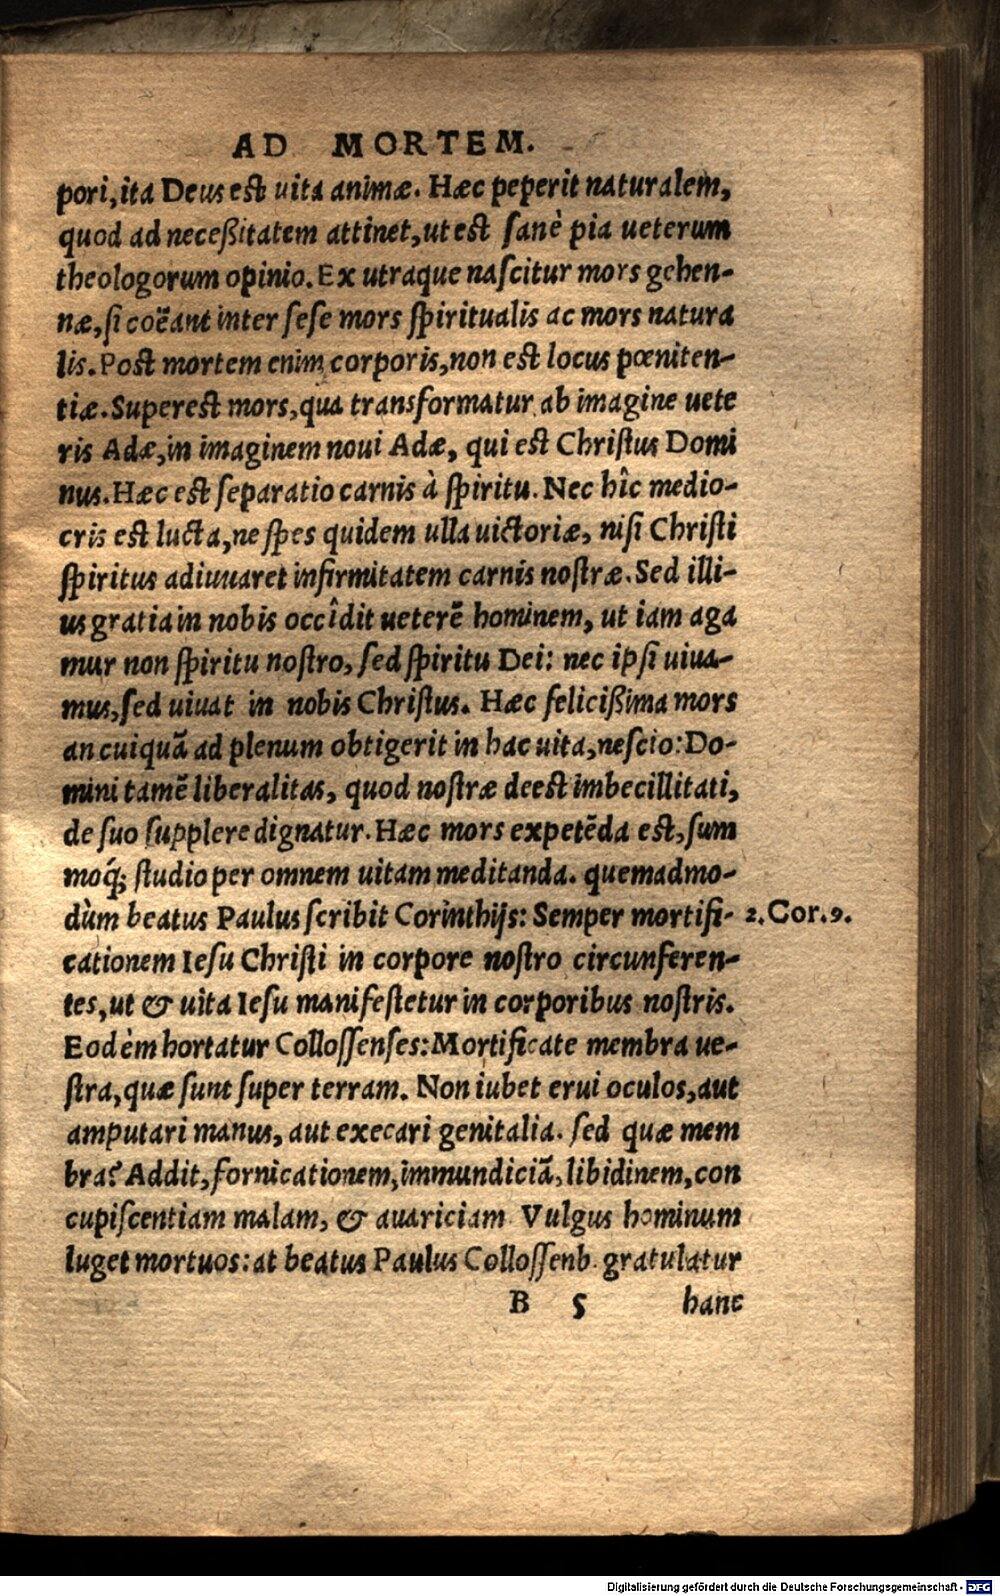 AD MORTEM.
pori, ita Deus est uita animæ. Hæc peperit naturalem,
quod ad neceßitatem attinet, ut est sanè pia ueterum
theologorum opinio. Ex utraque nascitur mors gehen-
næ, si coëant inter sese mors spiritualis ac mors natura
lis. Post mortem enim corporis, non est locus pœniten-
tiæ. Superest mors, qua transformatur ab imagine uete
ris Adæ, in imaginem noui Adæ, qui est Christus Domi
nus. Hæc est separatio carnis à spiritu. Nec hîc medio-
cris est lucta, ne spes quidem ulla uictoriæ, nisi Christi
spiritus adiuuaret infirmitatem carnis nostræ. Sed illi-
us gratia in nobis occîdit ueterē hominem, ut iam aga
mur non spiritu nostro, sed spiritu Dei: nec ipsi uiua-
mus, sed uiuat in nobis Christus. Hæc felicißima mors
an cuiquā ad plenum obtigerit in hac uita, nescio: Do-
mini tamē liberalitas, quod nostræ deest imbecillitati,
de suo supplere dignatur. Hæc mors expetēda est, sum
moq́; studio per omnem uitam meditanda. quemadmo-
dùm beatus Paulus scribit Corinthijs: Semper mortifi- 2. Cor. 9.
cationem Iesu Christi in corpore nostro circunferen-
tes, ut & uita Iesu manifestetur in corporibus nostris.
Eodèm hortatur Collossenses: Mortificate membra ue-
stra, quæ sunt super terram. Non iubet erui oculos, aut
amputari manus, aut execari genitalia. sed quæ mem
bra? Addit, fornicationem, immundiciā, libidinem, con
cupiscentiam malam, & auariciam Vulgus hominum
luget mortuos: at beatus Paulus Collossenb. gratulatur
B 5 hanc
Digitalisierung gefördert durch die Deutsche Forschungsgemeinschaft - DFG